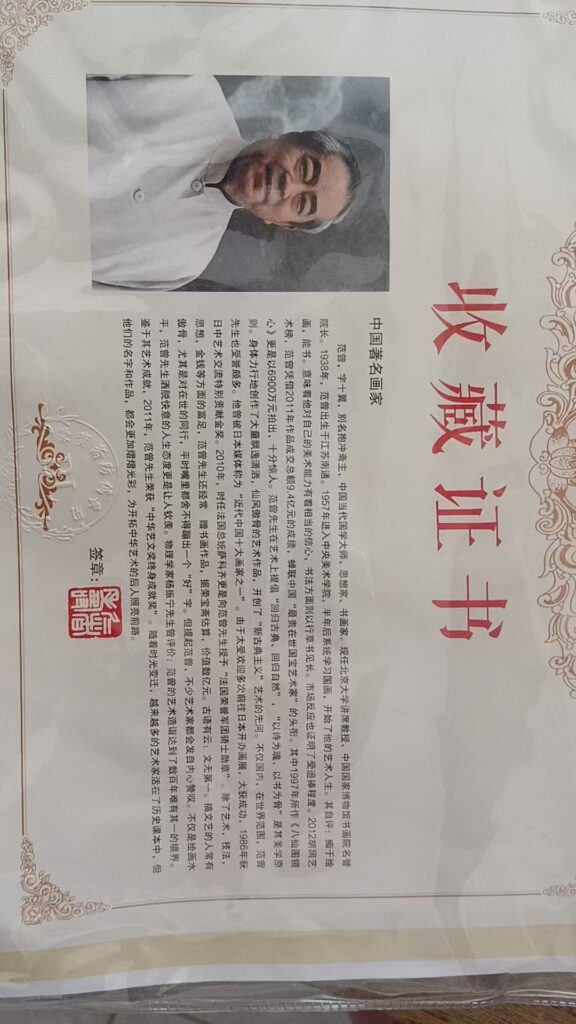 收藏证书
中国著名画家
范曾，字十翼，别名抱冲斋主，中国当代国学大师、思想家、书画家。现任北京大学讲席教授、中国国家博物馆书画院名誉
院长。1938年，范曾出生于江苏南通。1957年进入中央美术学院，半年后系统学习国画，开始了他的艺术人生。其自评：痴于绘
画，能书。意味着他对自己的美术能力有着相当的信心，书法方面则以行草书见长。市场反应也证明了受追捧程度。2012胡润艺
术榜，范曾凭借2011年作品成交总额9.4亿元的成绩，蝉联中国“最贵在世国宝艺术家”的头衔。其中1997年所作《八仙图镜
心》更是以6900万元拍出，十分惊人。范曾先生在艺术上提倡“回归古典、回归自然”，“以诗为魂、以书为骨”是其美学原
则。身体力行地创作了大量飘逸潇洒，仙风傲骨的艺术作品，开创了“新古典主义”艺术的先河。不仅国内，在世界范围，范曾
先生也受誉颇多。他曾被日本媒体称为“近代中国十大画家之一”。由于大受欢迎多次前往日本开办画展，大获成功，1986年获
日中艺术交流特别贡献金奖。2010年，时任法国总统萨科齐更是向范曾先生授予“法国荣誉军团骑士勋章”。除了艺术，技法，
思想，金钱等方面的富足，范曾先生还经常 赠书画作品，据荣宝斋估算，价值数亿元。古语有云：文无第一。搞文艺的人常有
傲骨，尤其是对在世的同行，平时嘴里都舍不得蹦出一个“好”字。但提起范曾，不少艺术家都会发自内心赞叹。不仅是绘画水
平，范曾先生洒脱快意的人生态度更是让人钦羡。物理学家杨振宁先生曾评价：范曾的艺术造诣达到了数百年难有其一的境界。
鉴于其艺术成就，2011年，范曾先生荣获“中华艺文奖终身成就奖”。随着时光变迁，越来越多的艺术家活在了历史课本中，但
他们的名字和作品，都会更加熠熠光彩，为开拓中华艺术的后人照亮前路。
签章：